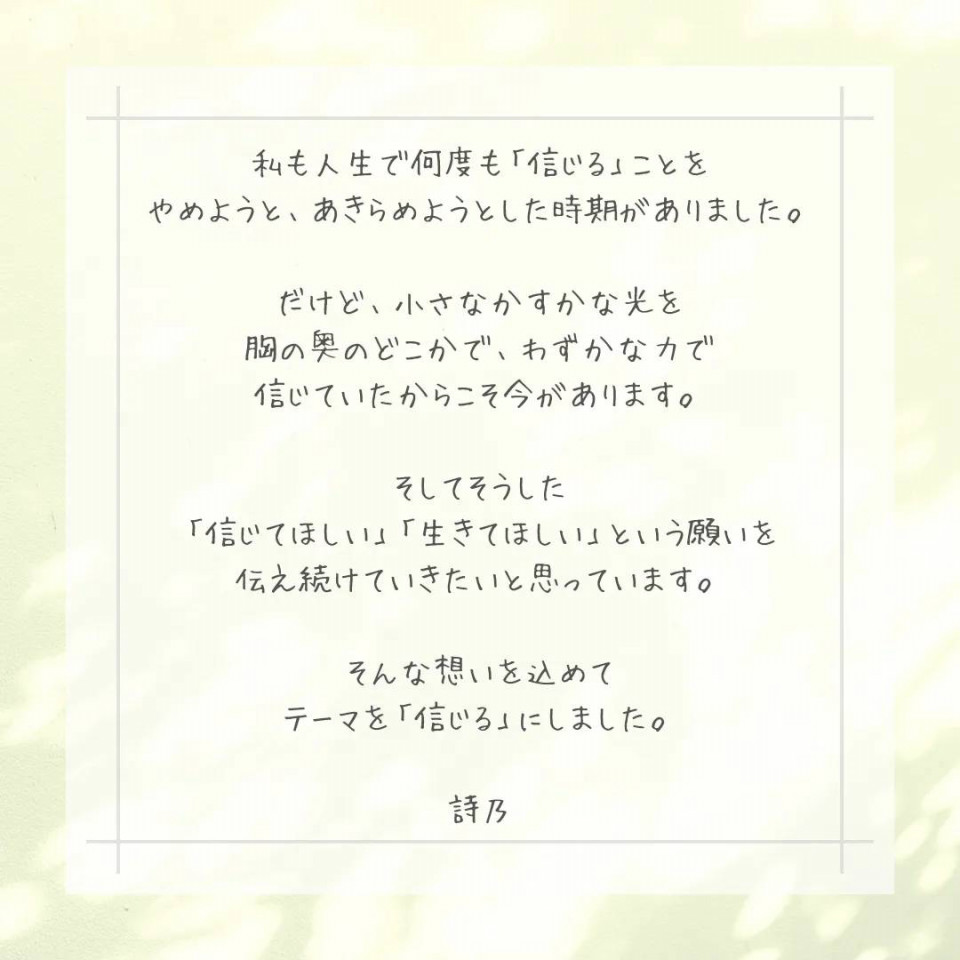 私も人生で何度も「信じる」ことを
やめようと、あきらめようとした時期がありました。
だけど、小さなかすかな光を
胸の奥のどこかで、わずかな力で
信じていたからこそ今があります。
そしてそうした
「信じてほしい」「生きてほしい」という願いを
伝え続けていきたいと思っています。
そんな想いを込めて
テーマを「信じる」にしました。
詩乃